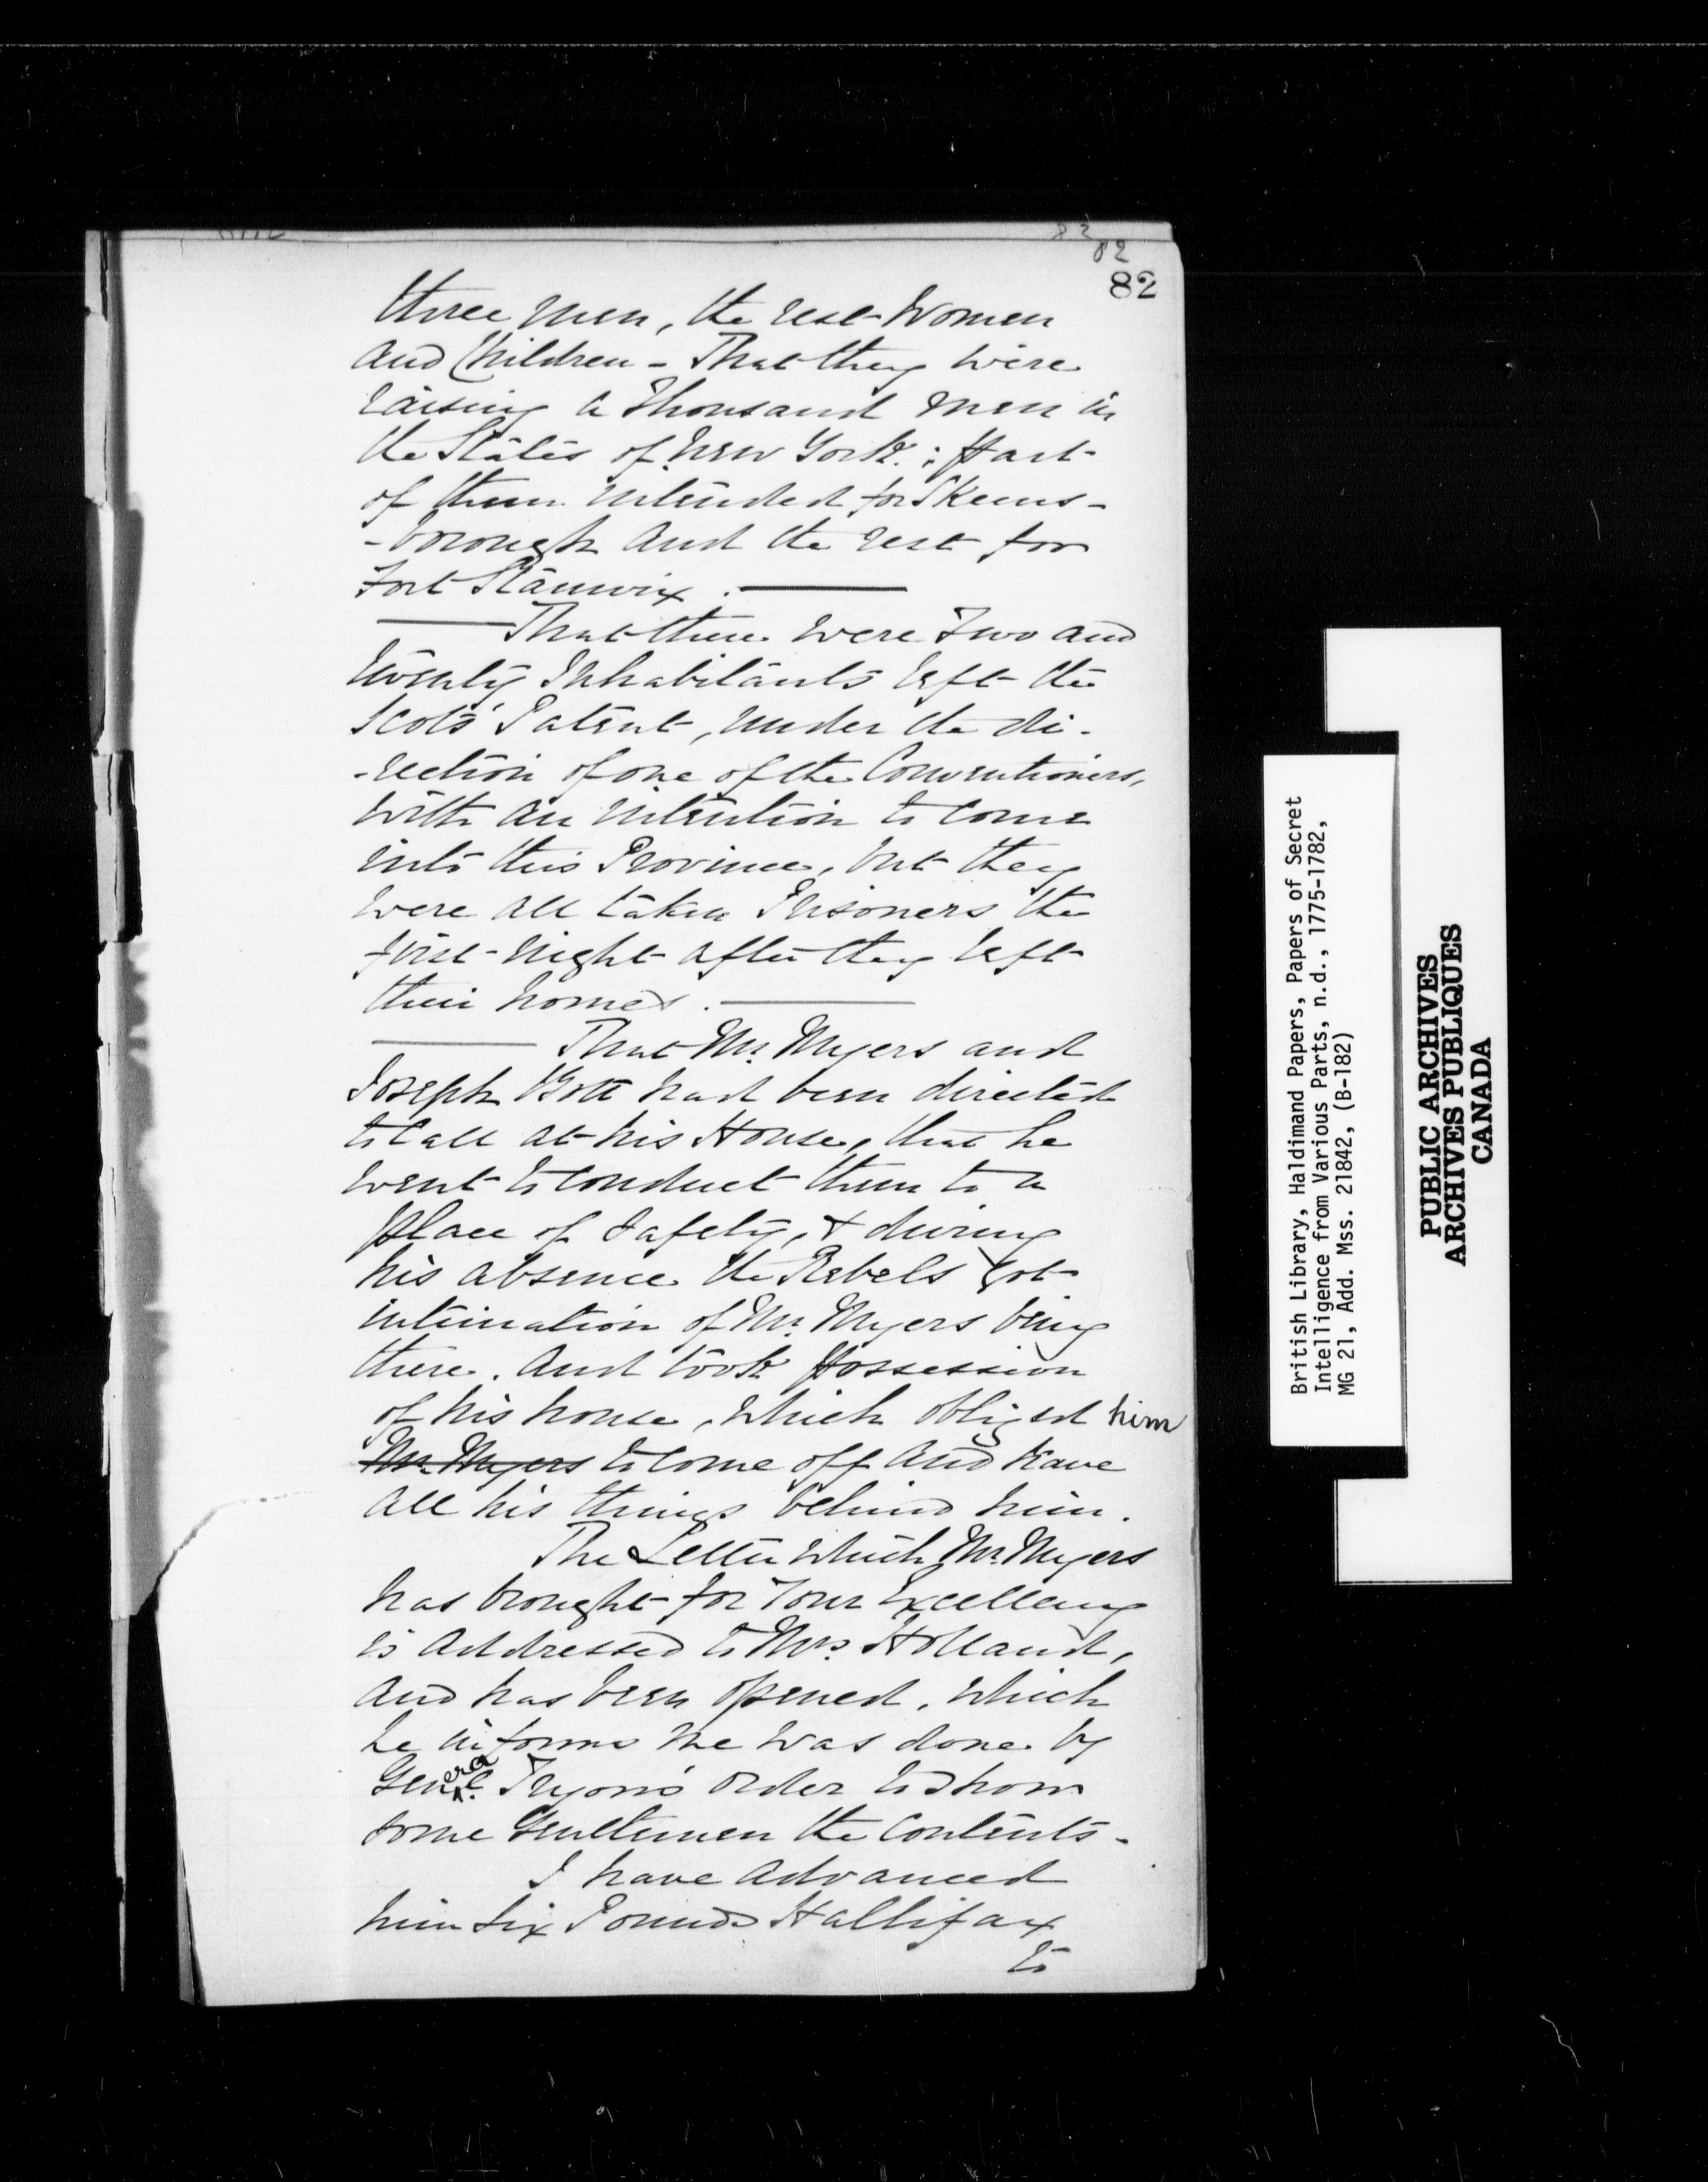 82
82
three men, the rest Women
and Children – That they were
raising a Thousand men in
the States of New York ; Part
of them intended for Skeens-
-borough and the rest for
Fort Stanwix . ———
——— That there were Two and
twenty Inhabitants left the
Scots Patent, under the di-
-rection of one of the Conventioners,
with an intention to come
into this Province, but they
were all taken Prisoners the
first night after they left
their homes . ———
——— That Mr. Myers and
Joseph Bott had been directed
to call at his House, that he
went to conduct them to a
place of Safety, & during
his absence the Rebels got
intimation of Mr. Myers being
there, and took Possession
of his house, which obliged him
Mr. Myers to come off and leave
all his things behind him.
The Letter which Mr. Myers
has brought for Your Excellency
is addressed to Mrs. Holland,
and has been opened, which
he informs me was done by
General Tryon's order to show
some Gentlemen the Contents -
I have advanced
him Six Pounds Hallifax
to
British Library, Haldimand Papers, Papers of Secret
Intelligence from Various Parts, n.d., 1775-1782,
MG 21, Add. Mss. 21842, (B-182)
PUBLIC ARCHIVES
ARCHIVES PUBLIQUES
CANADA